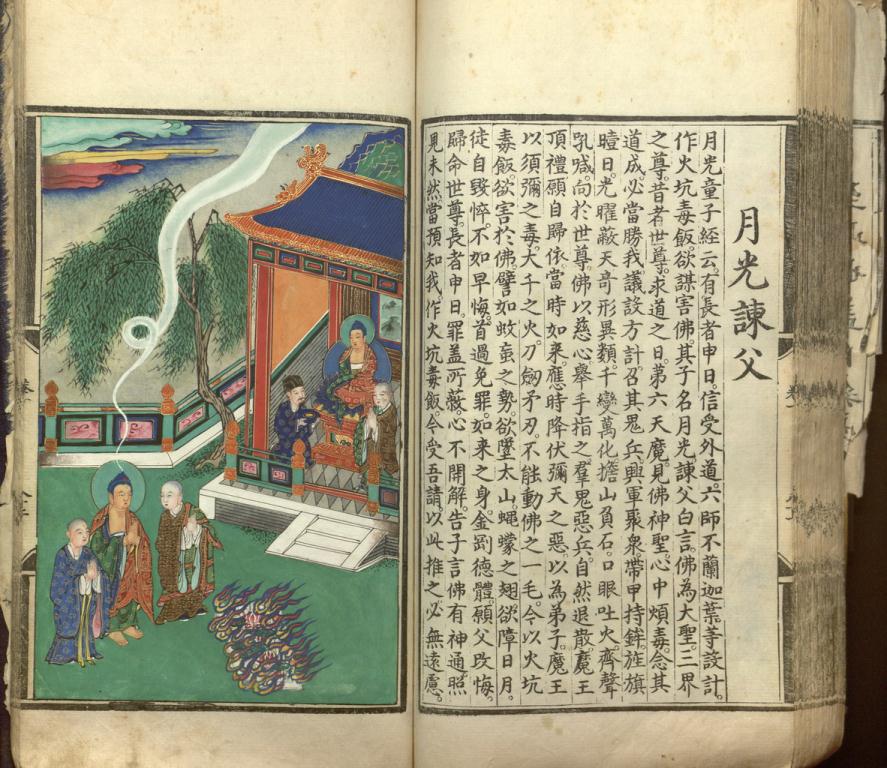 月光諫父
月光童子經云。有長者申日。信受外道。六師不蘭迦葉等設計。
作火坑毒飯。欲謀害佛。其子名月光諫父白言。佛為大聖。三界
之尊。昔者世尊。求道之日。第六天魔。見佛神聖。心中煩毒。念其
道成。必當勝我。議設方計。召其鬼兵。興軍聚衆。帶甲持鉾。旌旗
曀日。光曜蔽天。奇形異類。千變萬化。擔山負石。口眼吐火。齊聲
吼喊。向於世尊。佛以慈心。舉手指之。羣鬼惡兵。自然退散。魔王
頂禮。願自歸依。當時如來。應時降伏彌天之惡。以為弟子。魔王
以須彌之毒。大千之火。刀劒矛刃。不能動佛之一毛。今以火坑
毒飯。欲害於佛。譬如蚊䖟之勢。欲墮太山。蠅蠓之翅。欲障日月。
徒自毀悴。不如早悔。首過免罪。如來之身。金剛德體。願父改悔。
歸命世尊。長者申日。罪盖所蔽。心不開解。告子言。佛有神通。照
見未然。當預知我。作火坑毒飯。今受吾請。以此推之。必無遠慮。